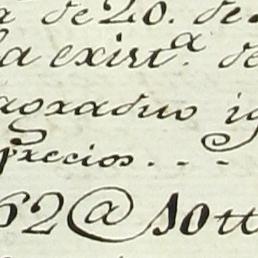 de 20. de
la exist.ª de
agraduo ig
precios. . .
62 @ 10 tt